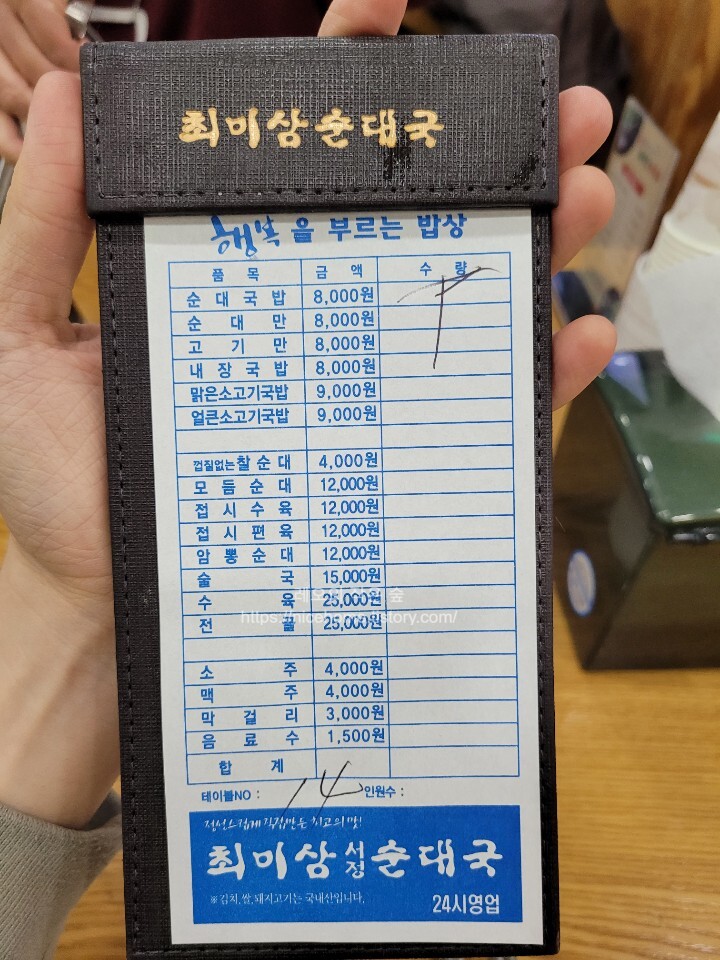 최미삼순대국
행복을 부르는 밥상
품목 금액 수량
순대국밥 8,000원
순대만 8,000원
고기만 8,000원
내장국밥 8,000원
맑은소고기국밥 9,000원
얼큰소고기국밥 9,000원
껍질없는찰순대 4,000원
모듬순대 12,000원
접시수육 12,000원
접시편육 12,000원
암뽕순대 12,000원
술국 15,000원
수육 25,000원
전골 25,000원
소주 4,000원
맥주 4,000원
막걸리 3,000원
음료수 1,500원
합계
테이블NO : 14 인원수 :
정성스럽게 직접만든 최고의 맛!
최미삼 서정 순대국
※김치,쌀,돼지고기는 국내산입니다.
24시영업